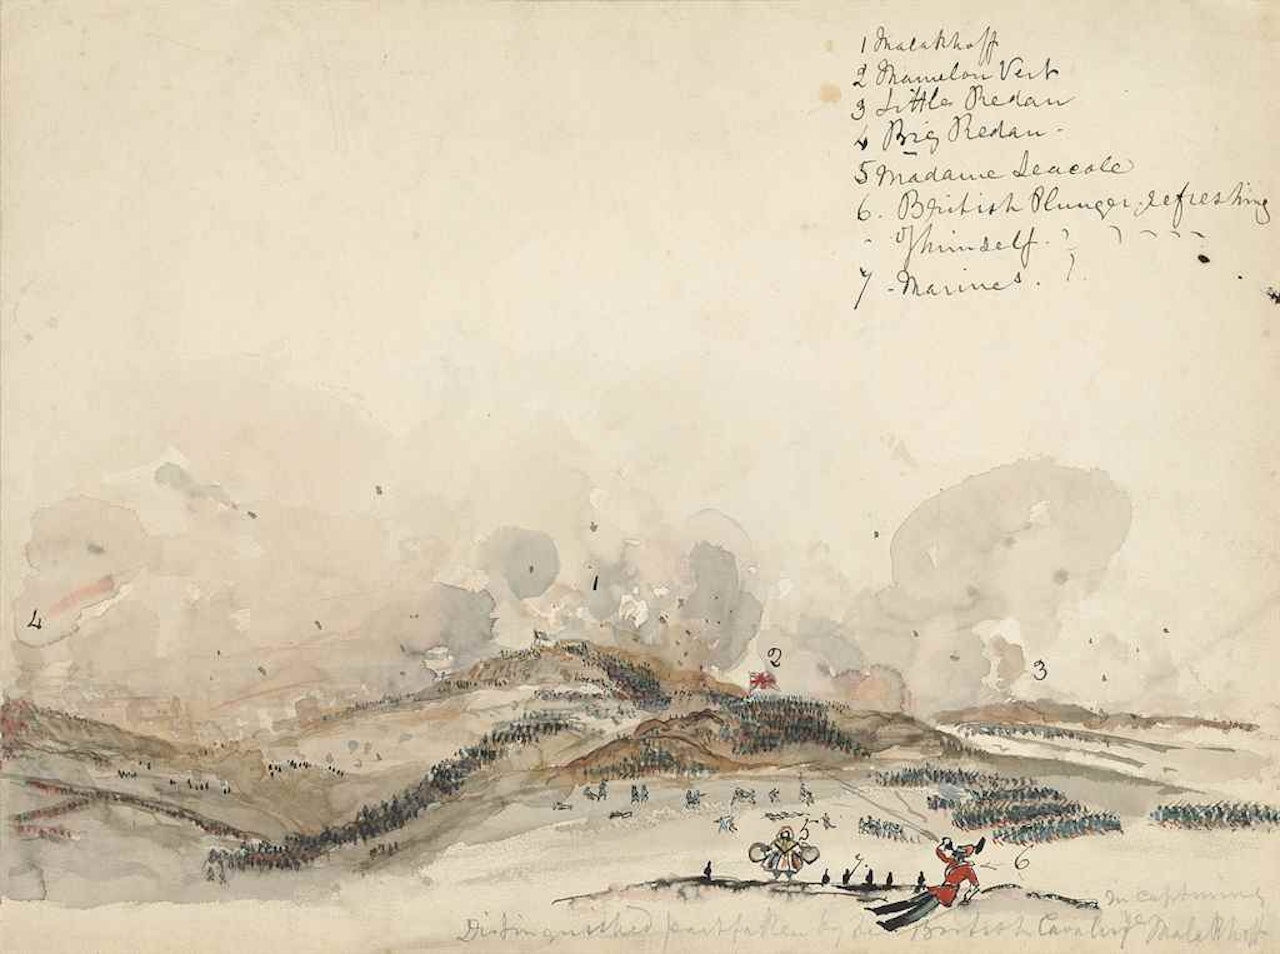 1 Malakhoff
2 Mamelon Vert
3 Little Redan
4 Big Redan -
5 Madame Seacole
6. British Plunger, refreshing
- of himself.
7 - Marines.
4
1
2
3
5
7.
6
in capturing
Distinguished part taken by the British Cavalry Malakhoff